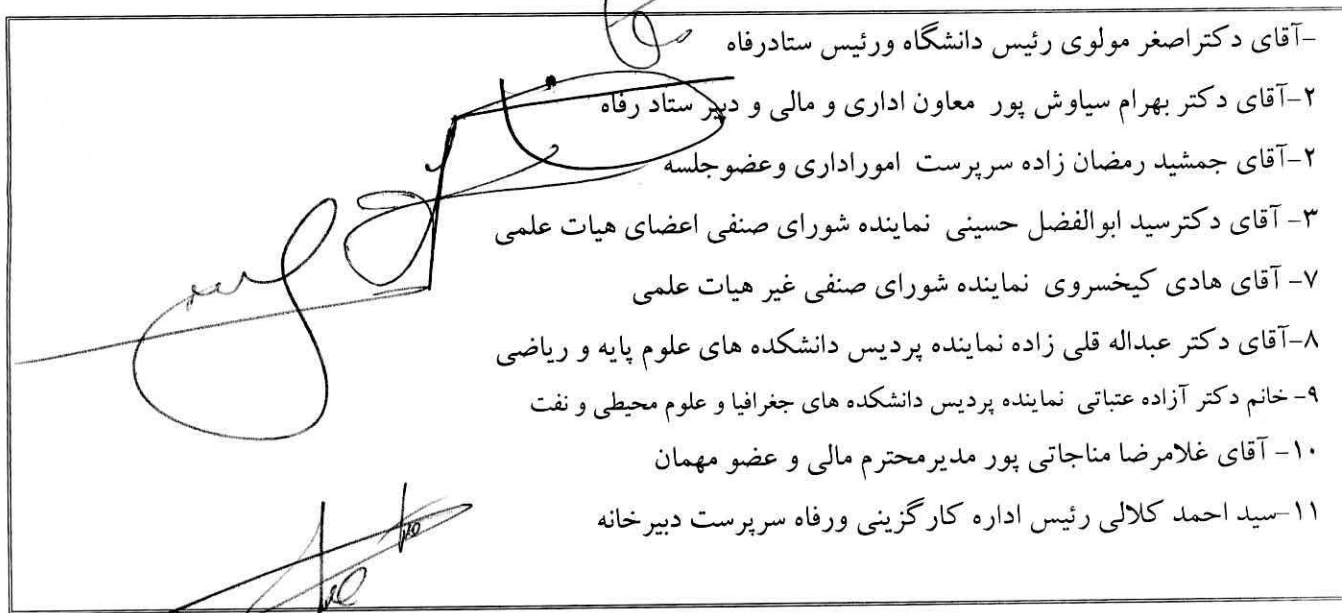 -آقای دکتراصغر مولوی رئیس دانشگاه ورئیس ستادرفاه
۲-آقای دکتر بهرام سیاوش پور معاون اداری و مالی و دبیر ستاد رفاه
۲-آقای جمشید رمضان زاده سرپرست اموراداری وعضوجلسه
۳- آقای دکترسید ابوالفضل حسینی نماینده شورای صنفی اعضای هیات علمی
۷- آقای هادی کیخسروی نماینده شورای صنفی غیر هیات علمی
۸-آقای دکتر عبداله قلی زاده نماینده پردیس دانشکده های علوم پایه و ریاضی
۹- خانم دکتر آزاده عتباتی نماینده پردیس دانشکده های جغرافیا و علوم محیطی و نفت
۱۰- آقای غلامرضا مناجاتی پور مدیرمحترم مالی و عضو مهمان
۱۱-سید احمد کلالی رئیس اداره کارگزینی ورفاه سرپرست دبیرخانه